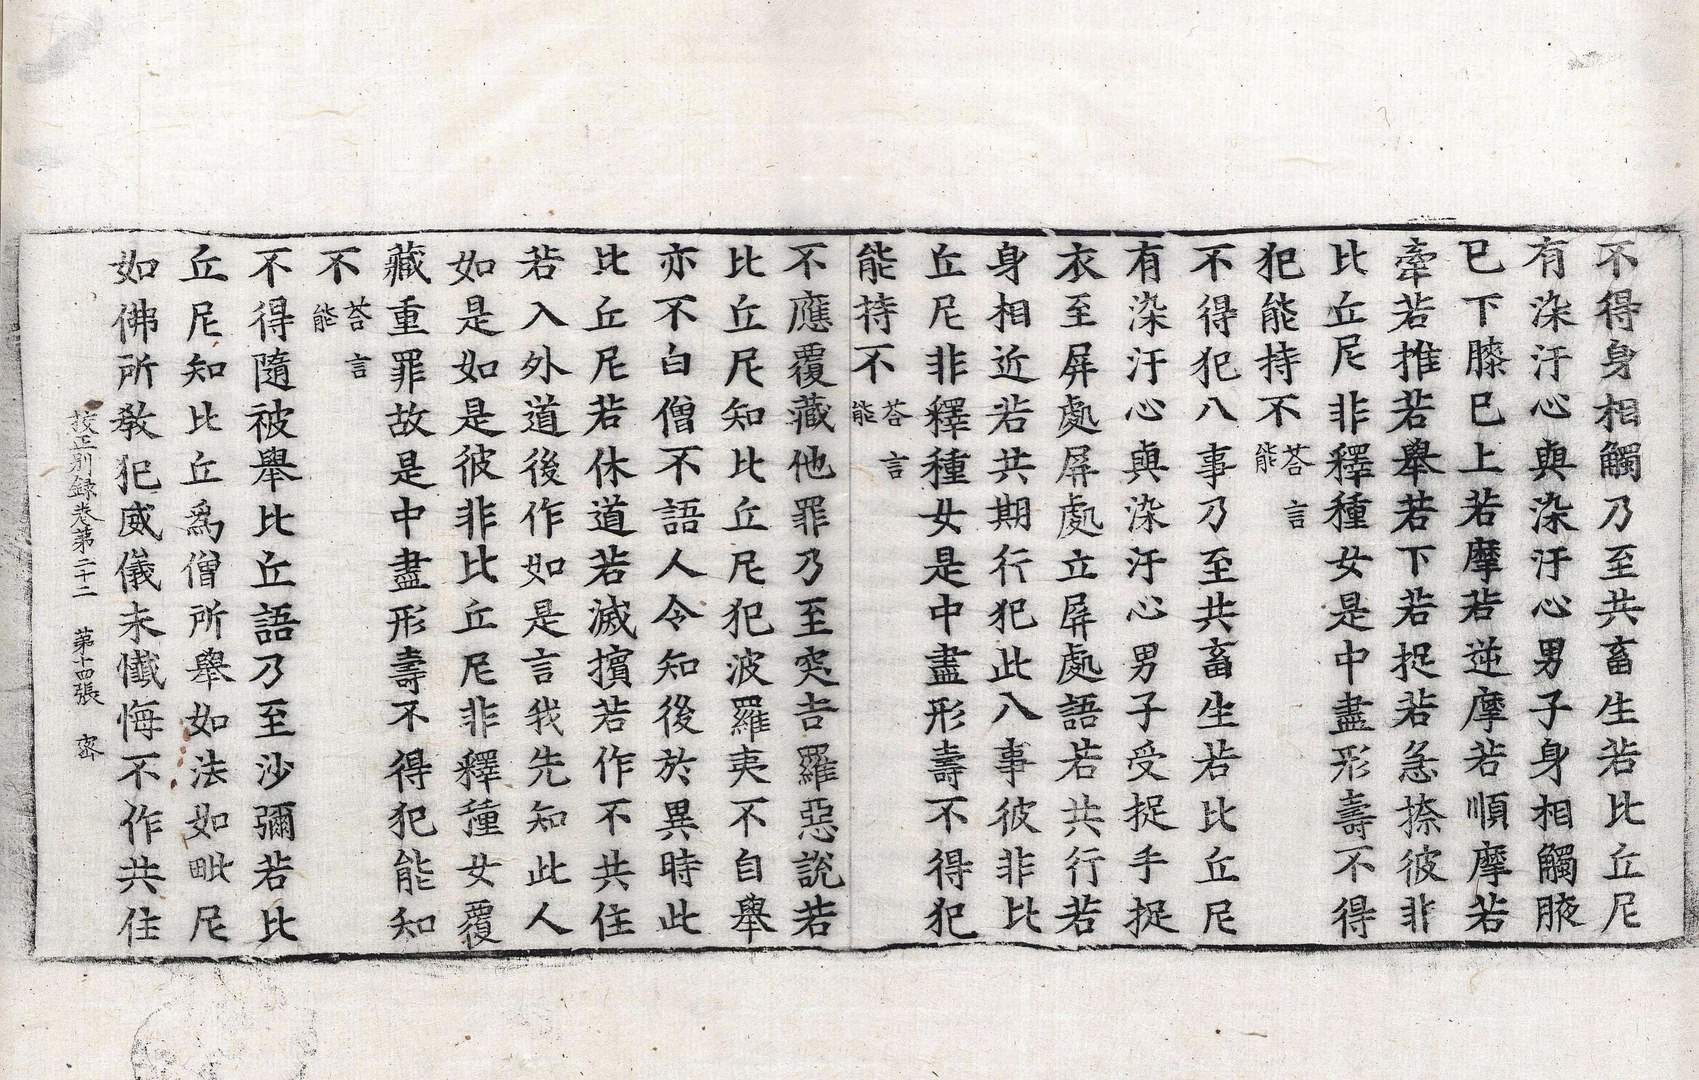 不得身相觸乃至共畜生若比丘尼
有染汙心與染汙心男子身相觸腋
已下膝已上若摩若逆摩若順摩若
牽若推若舉若下若捉若急捺彼非
比丘尼非釋種女是中盡形壽不得
犯能持不荅言能
不得犯八事乃至共畜生若比丘尼
有染汙心與染汙心男子受捉手捉
衣至屏處屏處立屏處語若共行若
身相近若共期行犯此八事彼非比
丘尼非釋種女是中盡形壽不得犯
能持不荅言能
不應覆藏他罪乃至突吉羅惡說若
比丘尼知比丘尼犯波羅夷不自舉
亦不白僧不語人令知後於異時此
比丘尼若休道若滅擯若作不共住
若入外道後作如是言我先知此人
如是如是彼非比丘尼非釋種女覆
藏重罪故是中盡形壽不得犯能知
不荅言能
不得隨被舉比丘語乃至沙彌若比
丘尼知比丘爲僧所舉如法如毗尼
如佛所教犯威儀未懺悔不作共住
挍正別録卷第二十二 第十四張 密